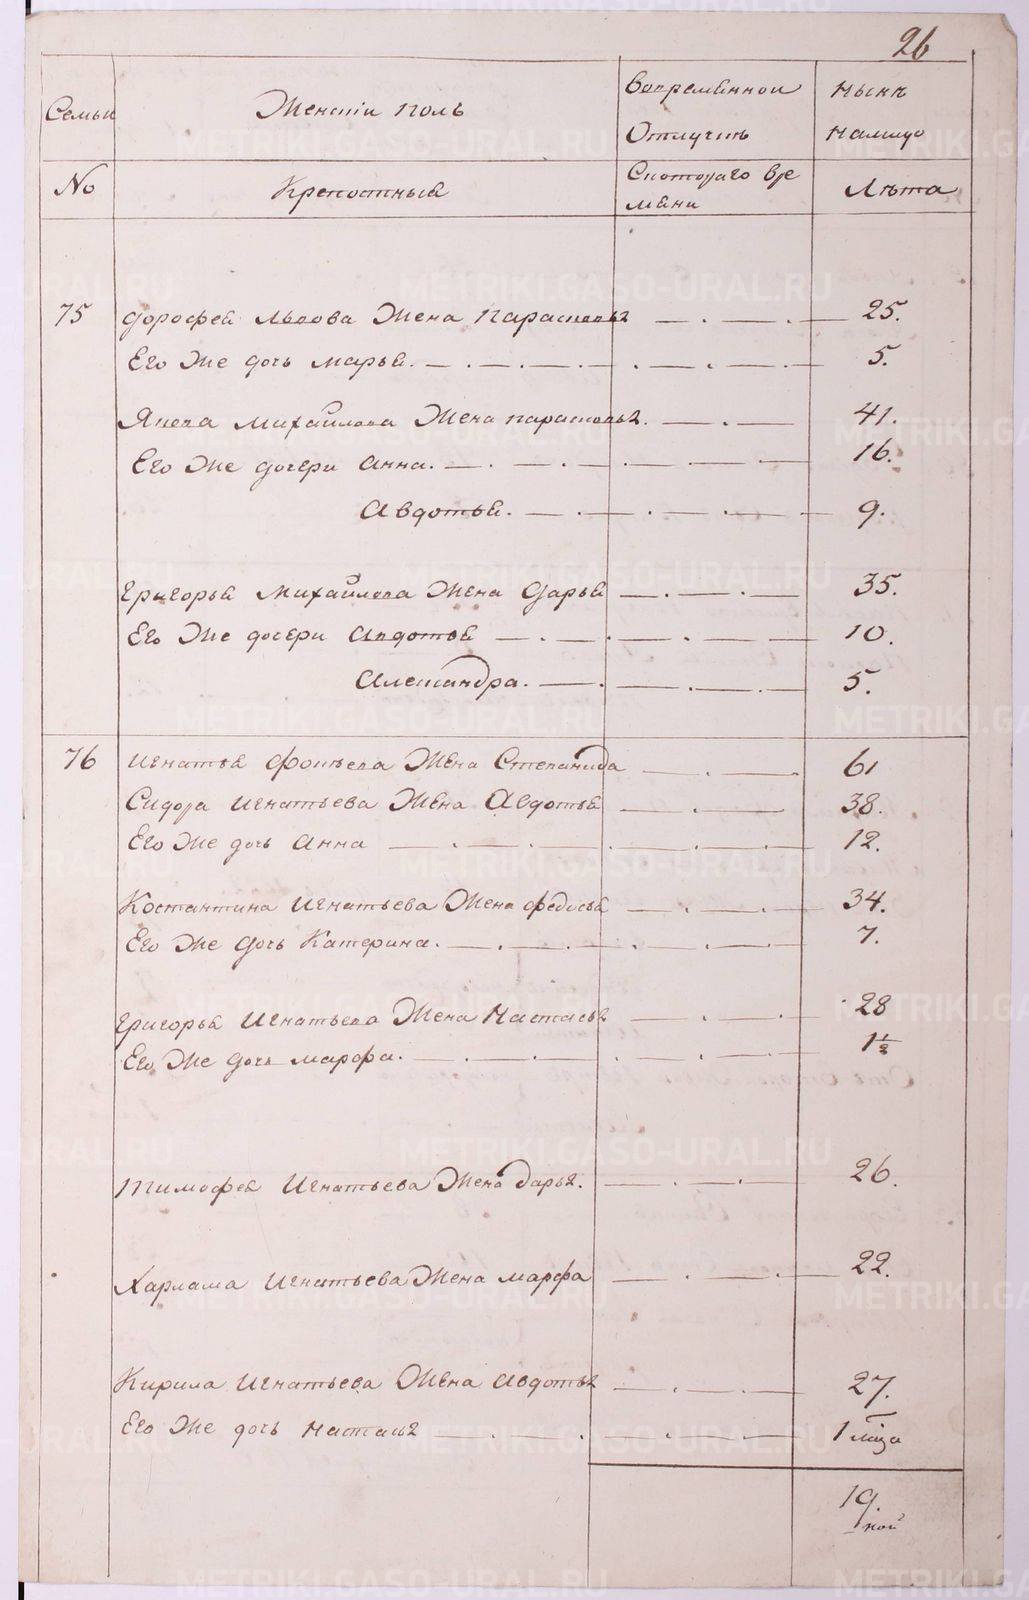 26
Семьи Женскіи полъ Вовременнои ныне
Отлучке налицо
No Крепостныя Скотораго вре Лѣта
мяни
75 дорофея Львова Жена Парасковья 25.
Его Же дочь марья. 5.
Якова михайлова Жена парасковья. 41.
Его Же дочери Анна. 16.
Авдотья. 9.
Григорья михайлова Жена Дарья 35.
Его Же дочери Авдотья 10.
Александра. 5.
76 игнатья фокѣева Жена Степанида 61
Сидора игнатьева Жена Авдотья 38.
Его Же дочь Анна 12.
Костантина игнатьева Жена федосья 34.
Его Же дочь Катерина. 7.
Григорья игнатьева Жена Настасья 28
Его Же дочь марфа. 1 1/2
тимофея игнатьева Жена Дарья. 26.
Харлама игнатьева Жена марфа 22.
Кирила игнатьева Жена Авдотья 27.
Его Же дочь 1
19.
METRIKI.GASO-URAL.RU